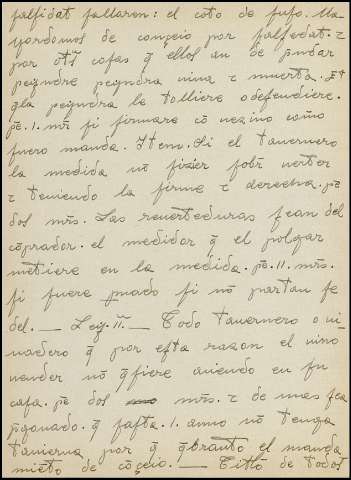 falfidat fallaren: el coto de fufo. Ma-
yordomos de conçeio por falfedat. τ
por otᷤ cofas q̃ ellos an de p̃ndar
peyndre peyndra uiua τ muerta. Et
qla peyndra le tolliere o defendiere.
pe. .I. mr̃ fi firmare cõ uezino cõmo
fuero manda. Item. Si el tauernero
la medida nõ fizier fobr̃ uerter
τ teniendo la firme τ derecha. pe
dos mr̃s. Las reuerteduras fean del
cõprador. el medidor q̃ el polgar
metiere en la medida. pe. II. mr̃s.
fi fuere p̃uado fi nõ partan fe
del. — Ley. II. — Todo tauernero o ui-
nadero q̃ por efta razon el uino
uender nõ q̃fiere auiendo en fu
cafa. pe dos mr̃s. τ de mas fea
p̃gonado. q̃ fafta .I. anno nõ tenga
tauierna por q̃ q̃branto el manda
miẽto de cõçeio. — Titᷤo de todos